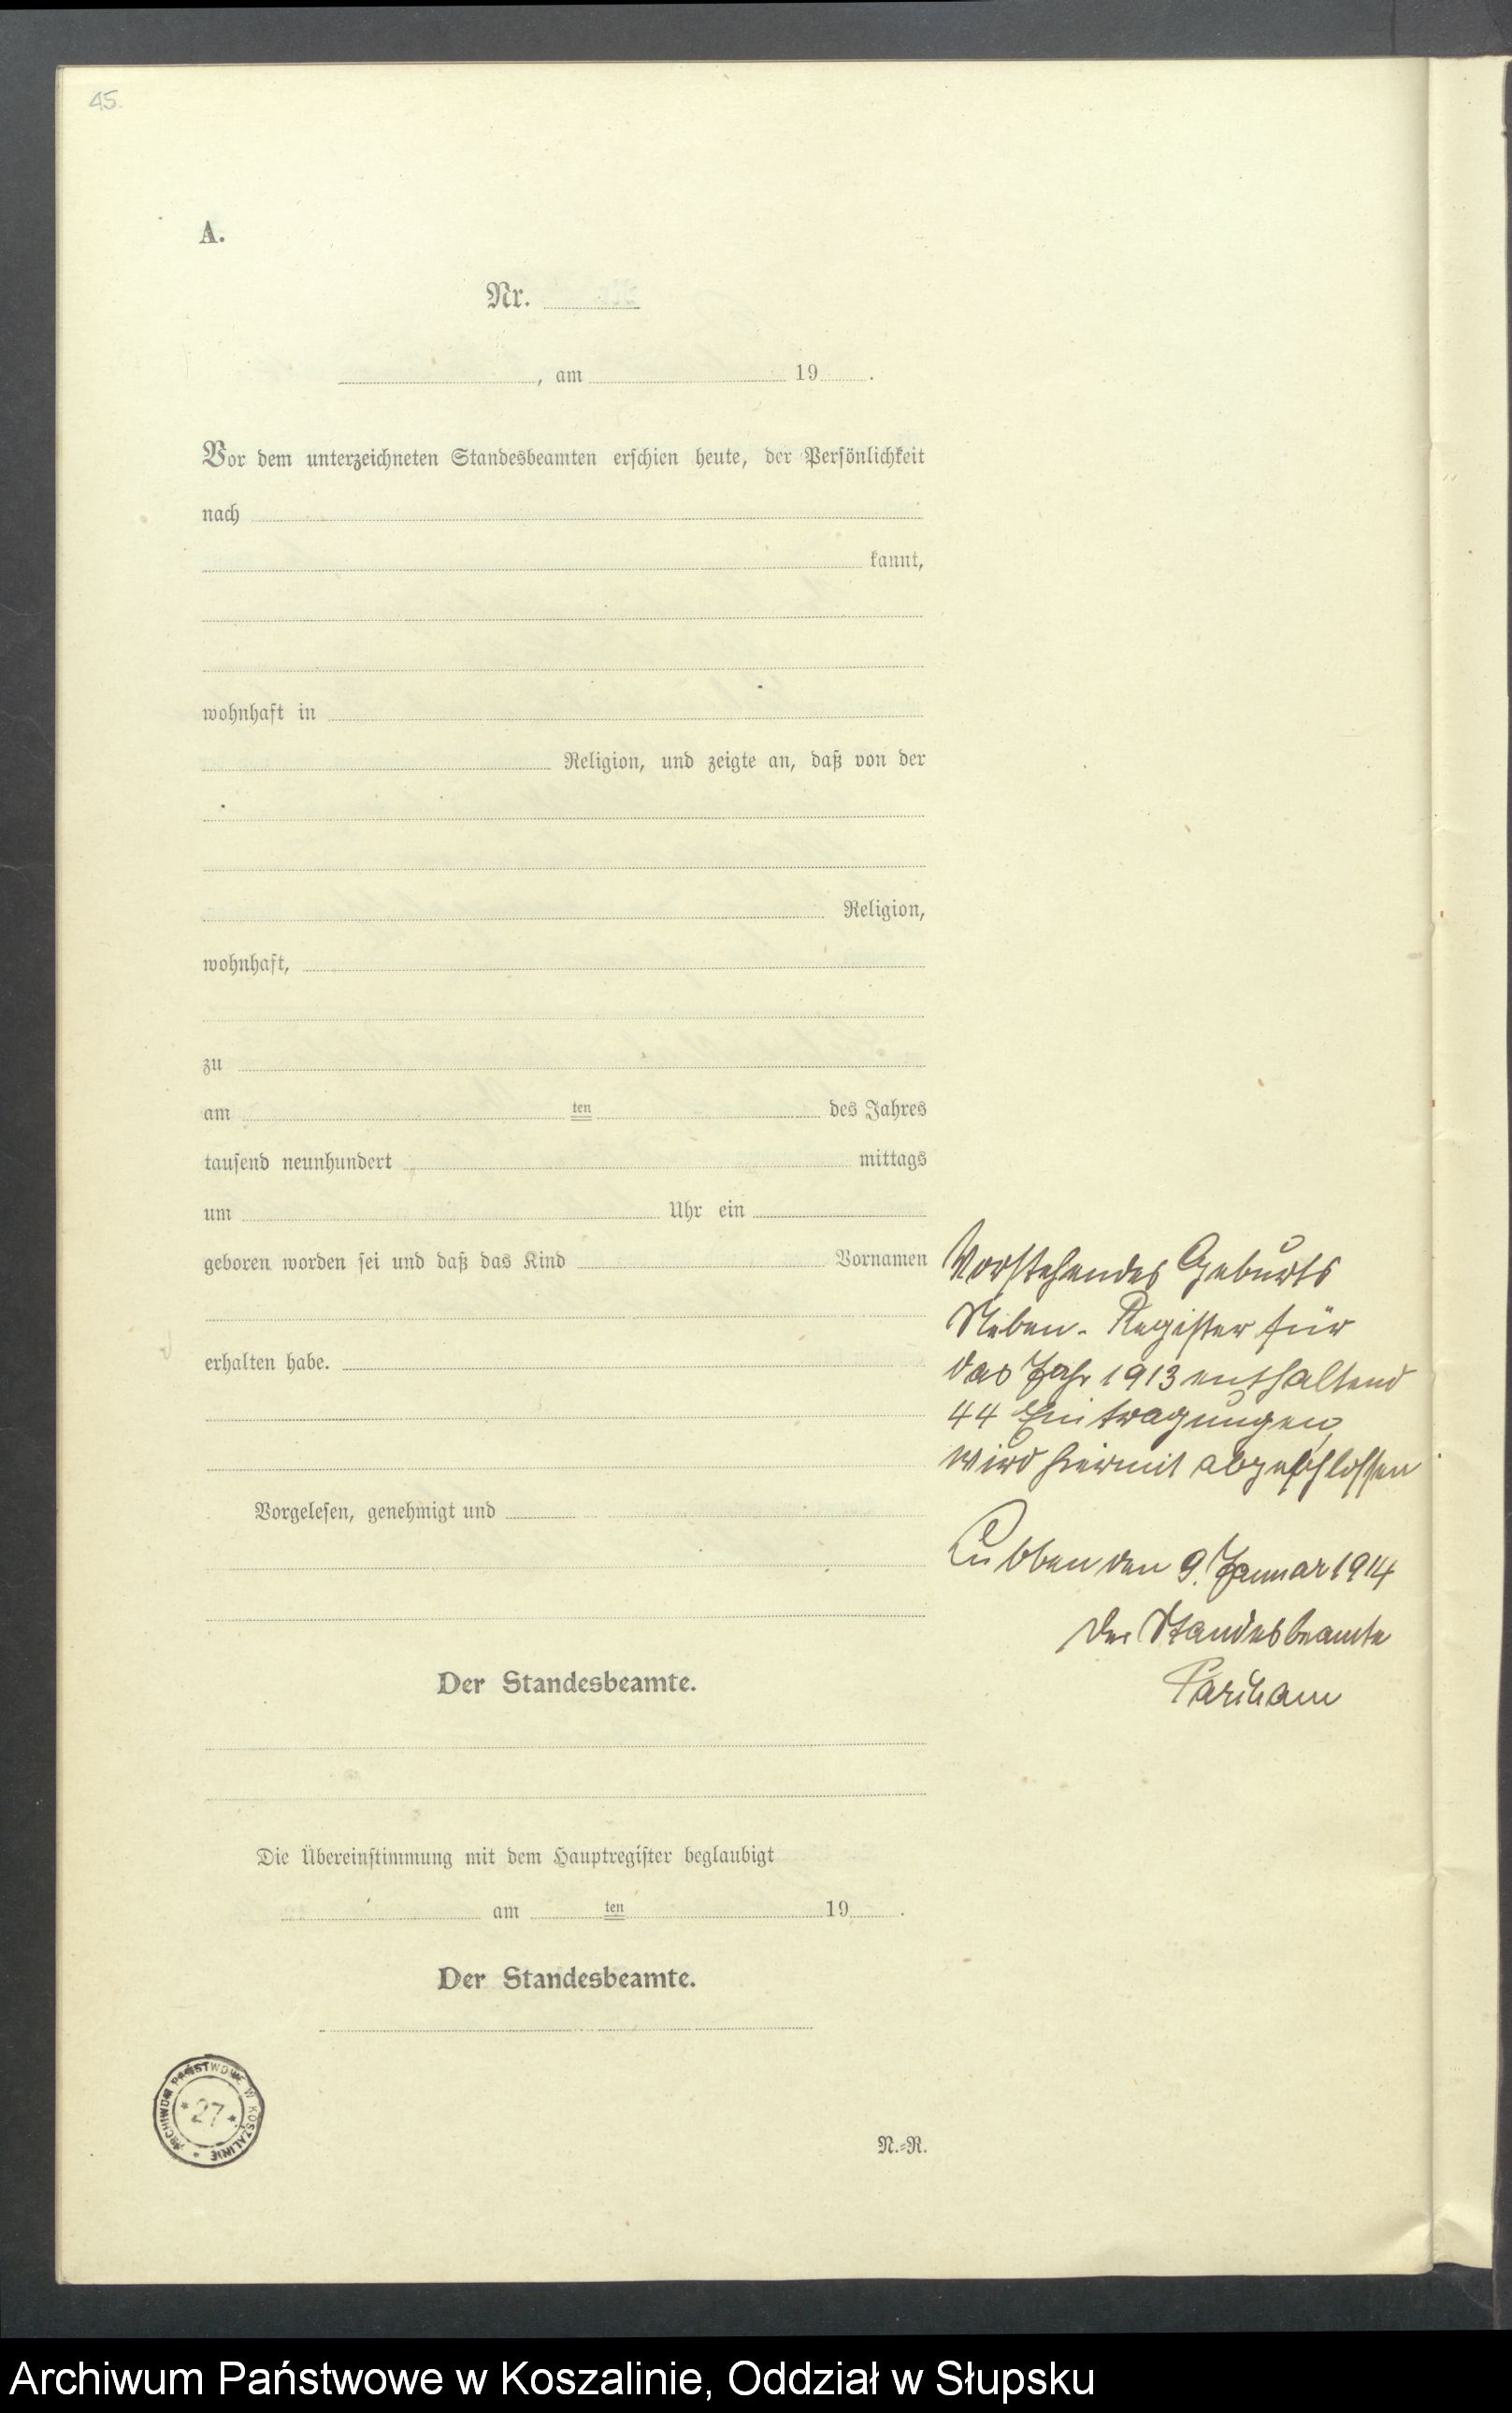 45.
A.
Nr.
, am 19 .
Vor dem unterzeichneten Standesbeamten erschien heute, der Persönlichkeit
nach
kannt,
wohnhaft in
Religion, und zeigte an, daß von der
Religion,
wohnhaft,
zu
am ten des Jahres
tausend neunhundert mittags
um Uhr ein
geboren worden sei und daß das Kind Vornamen
erhalten habe.
Vorgelesen, genehmigt und
Der Standesbeamte.
Die Übereinstimmung mit dem Hauptregister beglaubigt
am ten 19 .
Der Standesbeamte.
N.=R.
Vorstehendes Geburts
Neben-Register für
das Jahr 1913 enthaltend
44 Eintragungen,
wird hiermit abgeschlossen
Lubben den 9. Januar 1914
Der Standesbeamte
ARCHIWUM PAŃSTWOWE W KOSZALINIE
* 27 *
Archiwum Państwowe w Koszalinie, Oddział w Słupsku